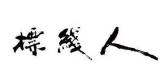 標綫人